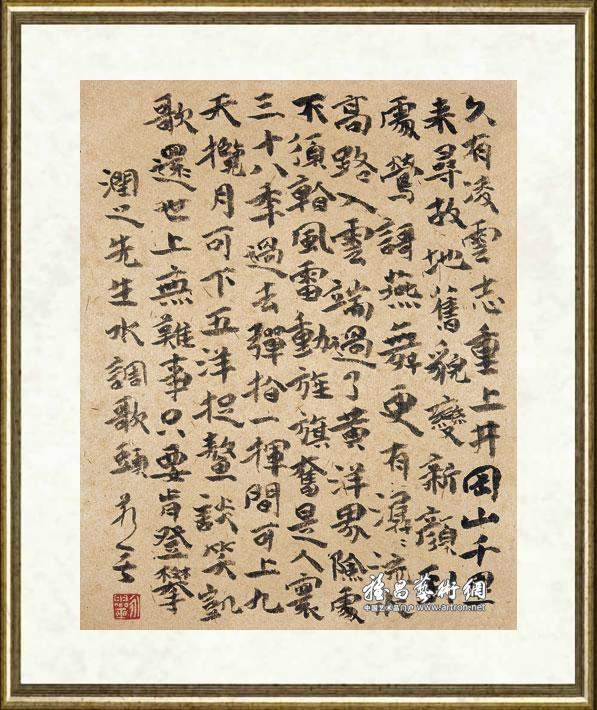 久有凌雲志重上井岡山千里
来尋故地舊貌變新顏到
處鶯謌燕舞更有潺〻流
高路入雲端過了黄洋界險處
不須翰風雷動旌旗奮是人寰
三十八季過去彈指一揮間可上九
天攬月可下五洋捉鰲談笑凱
歌還世上無難事只要肯登攀
潤之先生水調歌頭
雅昌藝術網
中国艺术品门户 www.artron.net